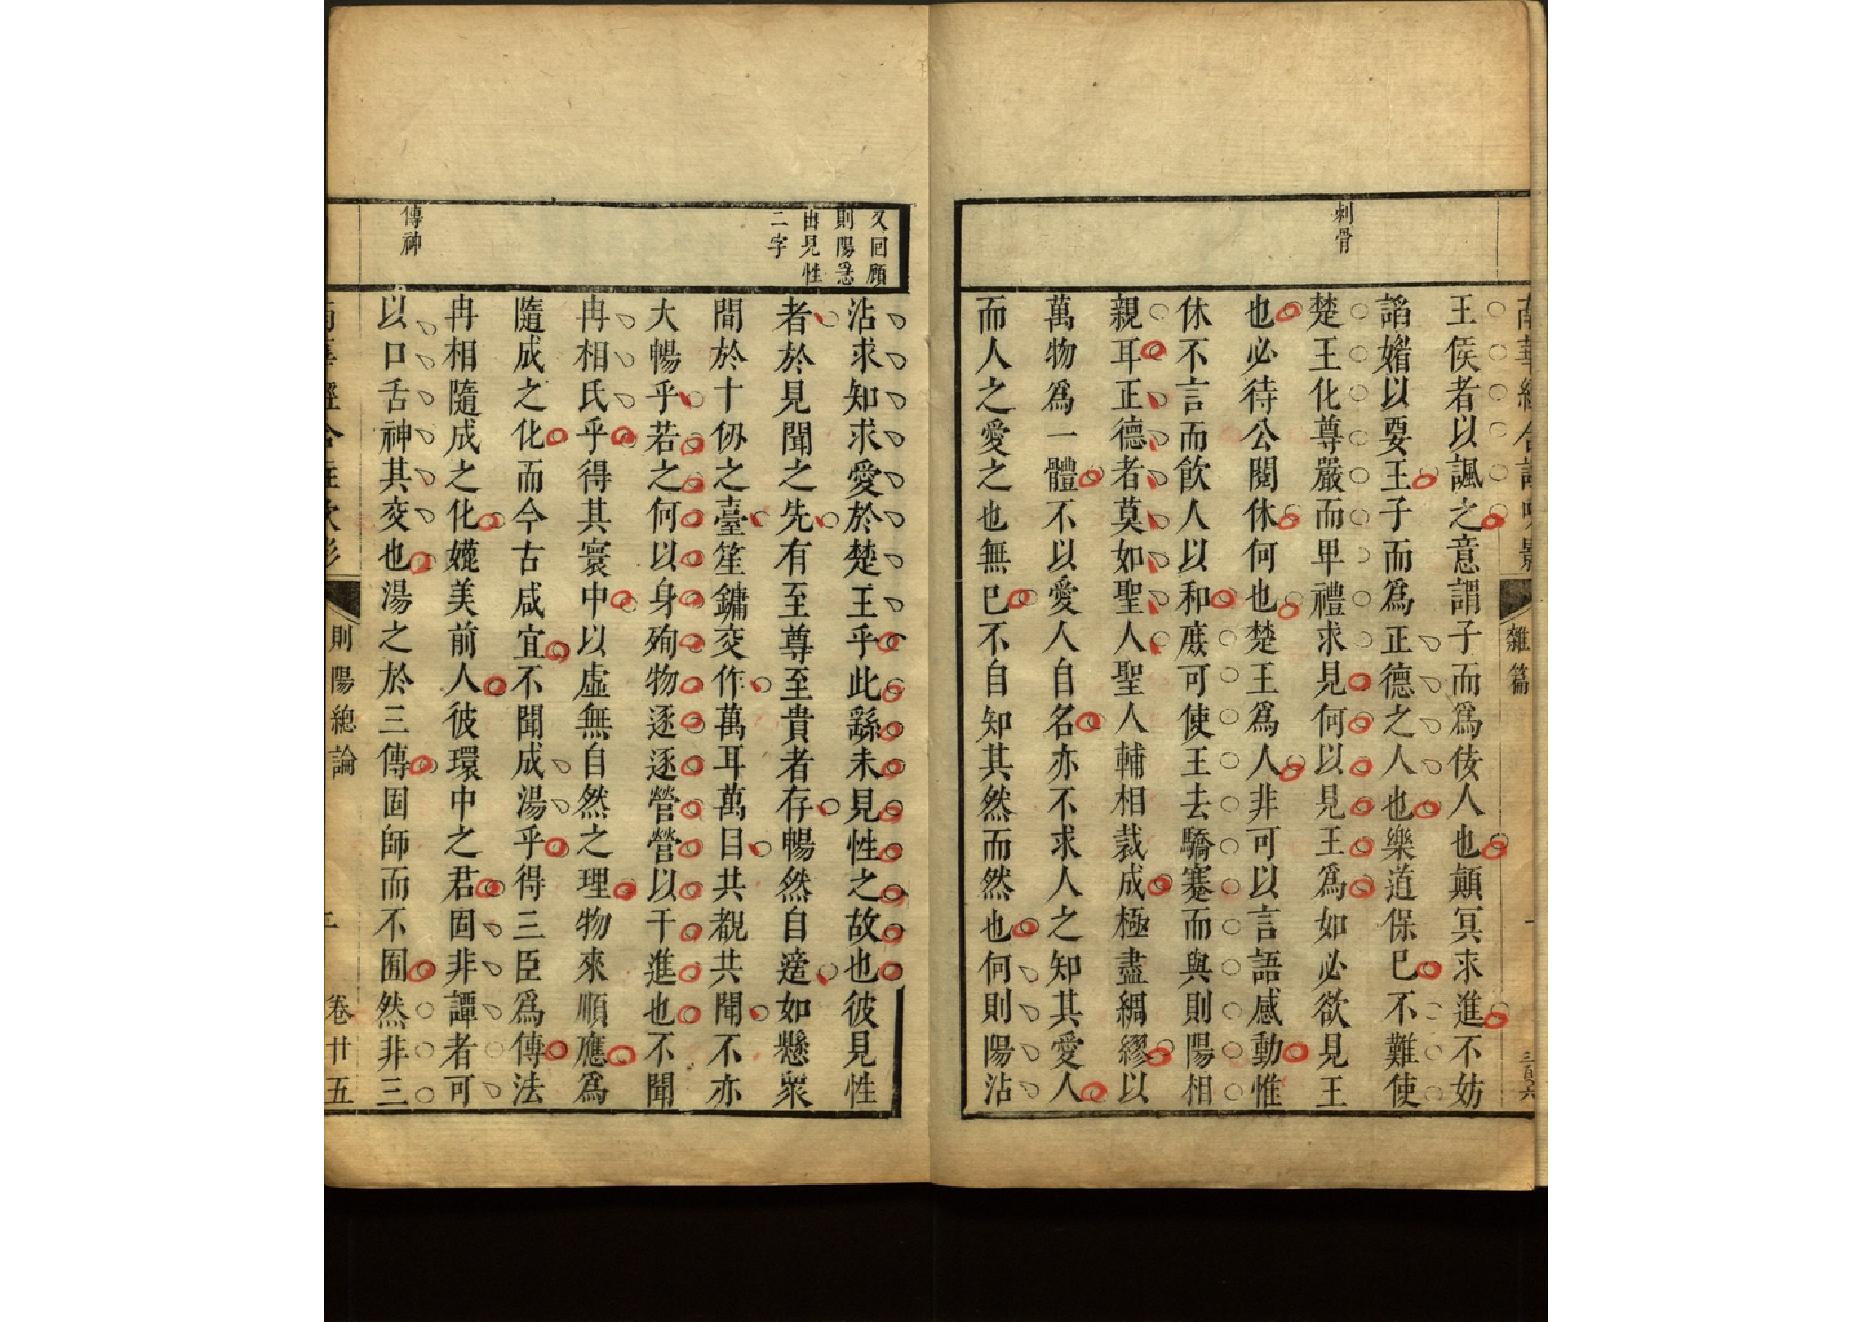 雜篇
刺骨
王侯者以諷之意謂子而爲佞人也顛冥求進不妨
謟媎以要王子而爲正德之人也樂道保已不難使
楚王化尊嚴而卑禮求見何以見王爲如必欲見王
也必待公閱休何也楚王爲人非可以言語感動惟
休不言而飲人以和庻可使王去驕蹇而與則陽相
親耳正德者莫如聖人聖人輔相裁成極盡綢繆以
萬物爲一體不以愛人自名亦不求人之知其愛人
而人之愛之也無已不自知其然而然也何則陽沾
又回顧
則陽爲
由見性
二字
傳神
沾求知求愛於楚王乎此繇未見性之故也彼見性
者於見聞之先有至尊至貴者存暢然自適如懸衆
間於十仞之臺笙鏞交作萬耳萬目共覩共聞不亦
大暢乎若之何以身殉物逐逐營營以干進也不聞
冉相氏乎得其寰中以虛無自然之理物來順應爲
隨成之化而今古咸宜不聞成湯乎得三臣爲傳法
冉相隨成之化嬔美前人彼環中之君固非譚者可
以口舌神其交也湯之於三傳固師而不囿然非三
則陽總論
卷廿五